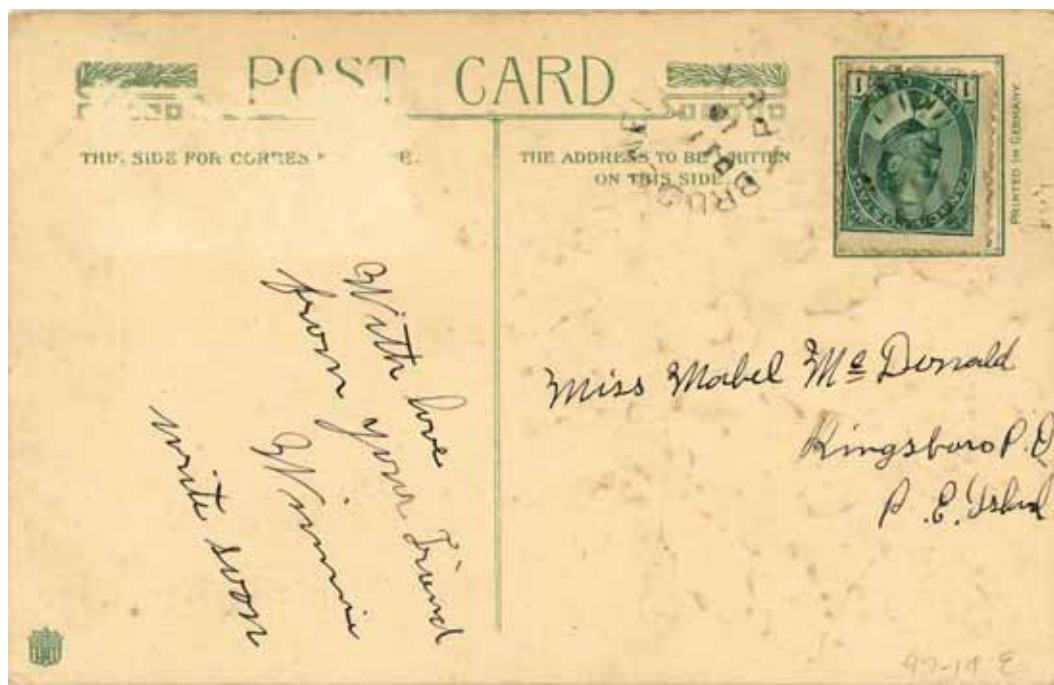 POST CARD
THIS SIDE FOR
THE ADDRESS TO BE WRITTEN
ON THIS SIDE
PRINTED IN GERMANY
1 1
With love
from your Friend
Winnie
write soon
Miss Mabel Mc Donald
Kingsboro P.O
P.E. Island
97-14 E